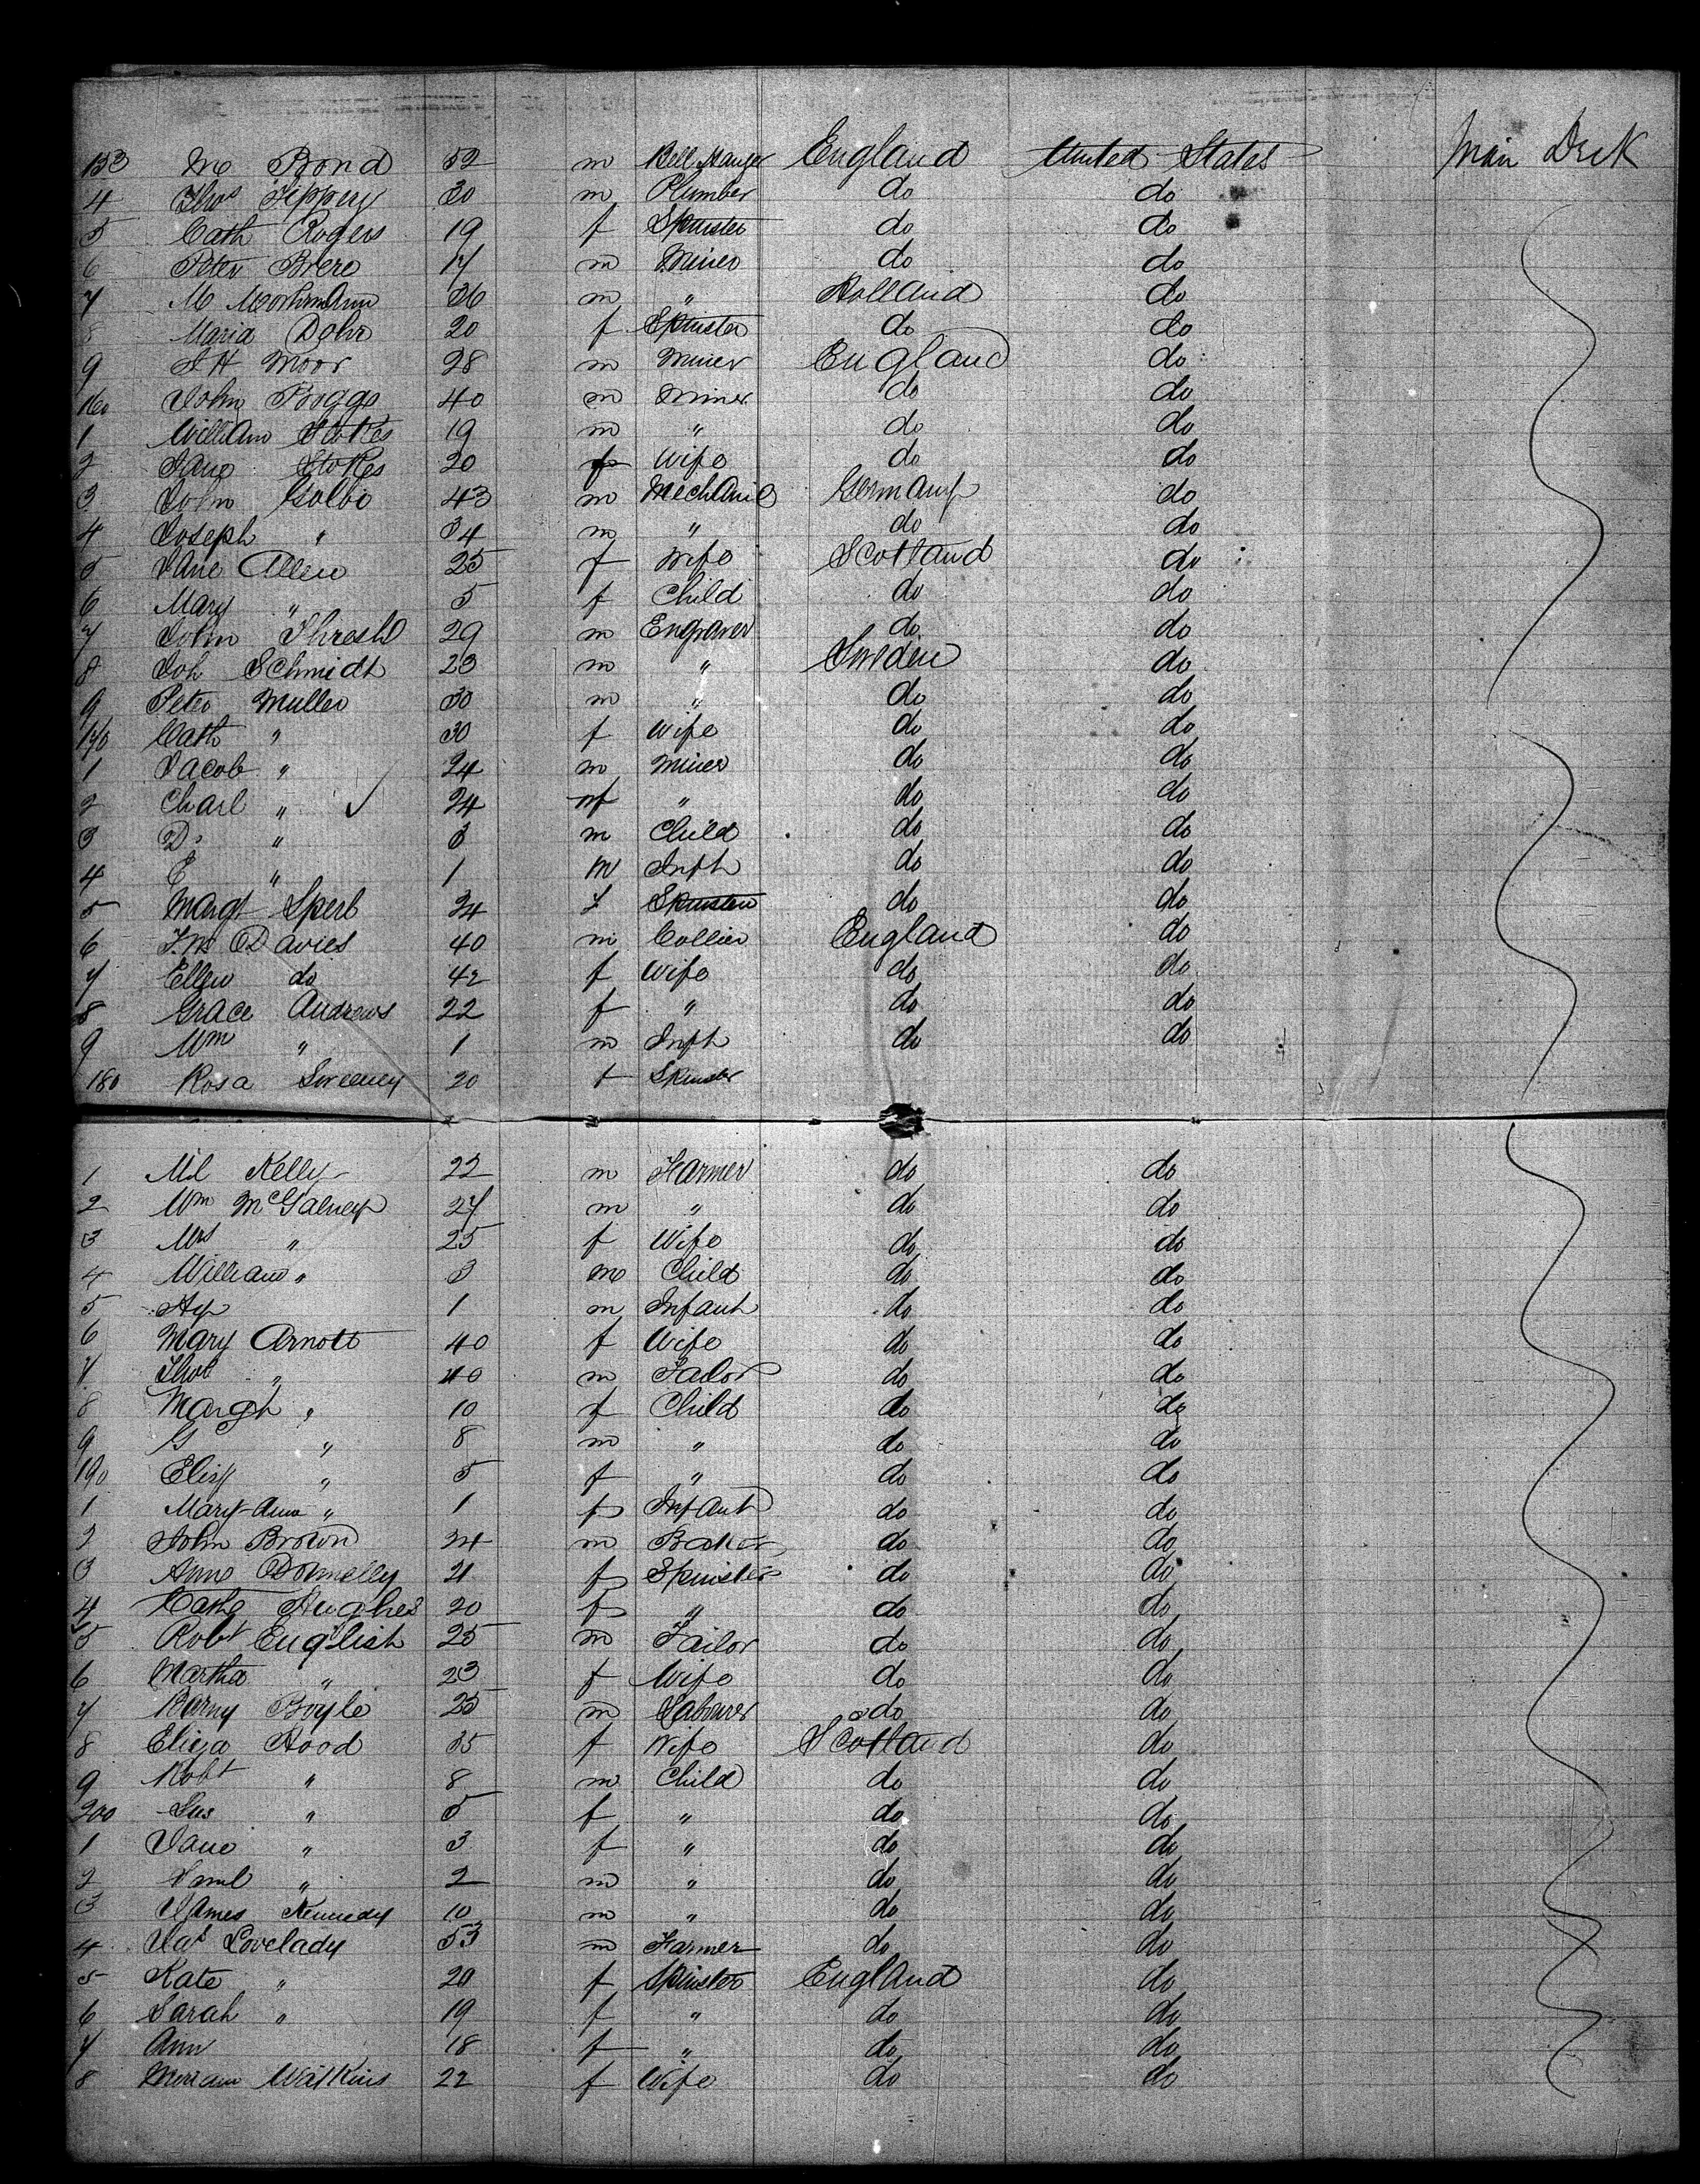 153 M Bond 52 m Bell Hanger England United States Main Deck
4 Thos Tippery 30 m Plumber do do
5 Cath Rogers 19 f Spinster do do
6 Peter Brere 17 m Miner do do
7 M 36 m " Holland do
8 Maria Dohr 20 f Spinster do do
9 J H Moor 28 m Miner England do
160 John Boggs 40 m Miner do do
1 William Stokes 19 m " do do
2 Jane Stokes 20 f Wife do do
3 John Golbi 43 m Mechanic Germany do
4 Joseph " 34 m " do do
5 Jane Allen 25 f Wife Scotland do
6 Mary " 5 f Child do do
7 John Thresh 29 m Engraver do do
8 Joh Schmidt 23 m " Sweden do
9 Peter Muller 30 m " do do
170 Cath " 30 f Wife do do
1 Jacob " 24 m Miner do do
2 Charl " 24 f " do do
3 D " 3 m Child do do
4 E " 1 m Inft do do
5 Margt Sperl 24 f Spinster do do
6 Davies 40 m Collier England do
7 Ellen do 42 f Wife do do
8 Grace Andrews 22 f " do do
9 Wm " 1 m Inft do do
180 Rosa Sweeney 20 f Spinster
1 Ml Kelly 22 m Farmer do do
2 Wm McGalney 27 m " do do
3 Mrs " 25 f Wife do do
4 William " 3 m Child do do
5 1 m Infant do do
6 Mary Arnott 40 f Wife do do
7 Thos " 40 m Tailor do do
8 Margt " 10 f Child do do
9 G " 8 m " do do
190 Eliz " 5 f " do do
1 Mary-Ann " 1 f Infant do do
2 John Brown 24 m Baker do do
3 Anne Donnelly 21 f Spinster do do
4 Cathe Hughes 20 f " do do
5 Robt English 25 m Tailor do do
6 Martha " 23 f Wife do do
7 Barny Boyle 25 m Labourer do do
8 Eliza Hood 35 f Wife Scotland do
9 Robt " 8 m Child do do
200 Sus " 5 f " do do
1 Jane " 3 f " do do
2 Saml " 2 m " do do
3 James Kennedy 10 m " do do
4 Jas Lovelady 53 m Farmer do do
5 Kate " 20 f Spinster England do
6 Sarah " 19 f " do do
7 Ann 18 f " do do
8 Miriam Watkins 22 f Wife do do